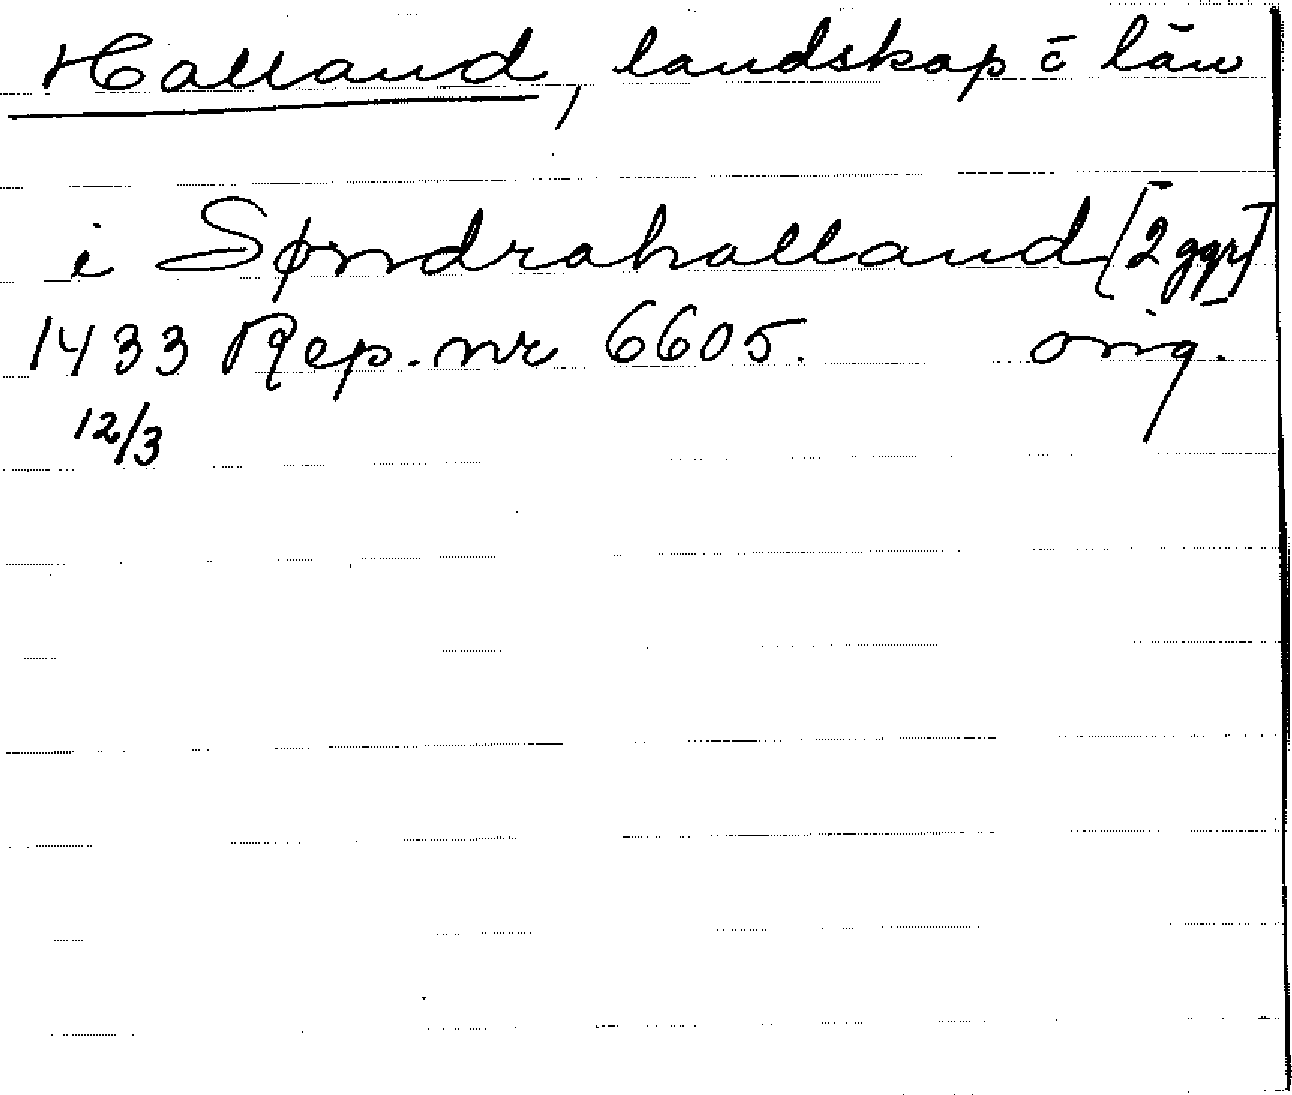 Halland, landskap c̄ län
i Søndrahalland [2 ggr]
1433 Rep. nr 6605. orig.
12/3